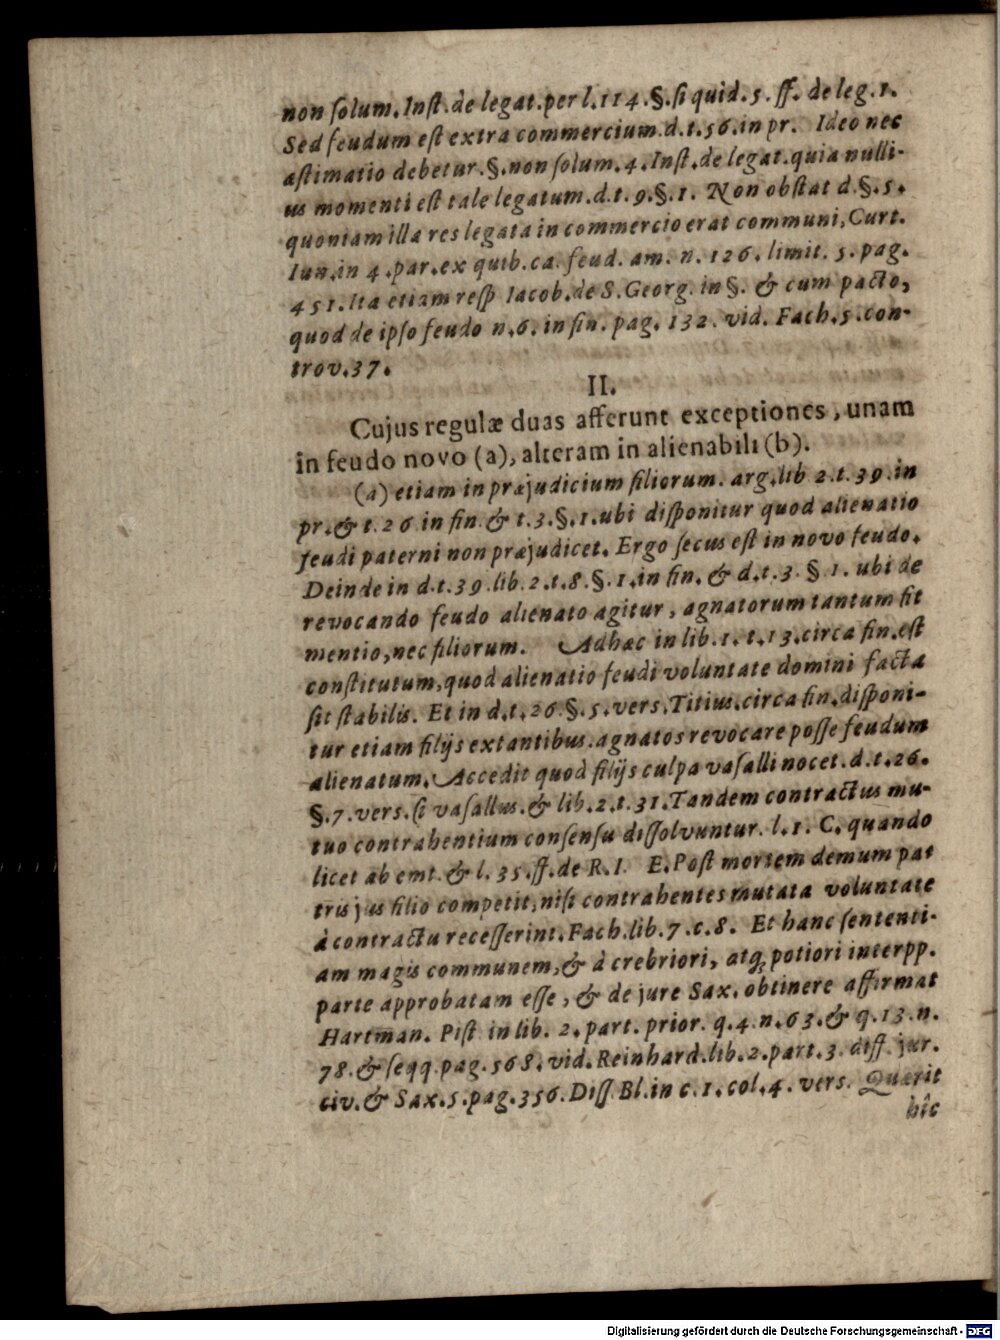 non ſolum. Inſt. de legat. per l. 114. §. ſi quid. 5. ff. de leg. 1.
Sed feudum eſt extra commercium. d. t. 56. in pr. Ideo nec
æſtimatio debetur. §. non ſolum. 4. Inſt. de legat. quia nulli-
us momenti eſt tale legatum. d. t. 9. §. 1. Non obſtat d. §. 5.
quoniam illa res legata in commercio erat communi, Curt.
Iun. in 4. par. ex quib. ca. feud. am. n. 126. limit. 5. pag.
451. Ita etiam reſp Iacob. de S. Georg. in §. & cum pacto,
quod de ipſo feudo n. 6. in fin. pag. 132. vid. Fach. 5. con-
trov. 37.
II.
Cujus regulæ duas afferunt exceptiones, unam
in feudo novo (a), alteram in alienabili (b).
(a) etiam in præjudicium filiorum. arg. lib 2. t. 39. in
pr. & t. 26 in fin. & t. 3. §. 1. ubi diſponitur quod alienatio
feudi paterni non præjudicet. Ergo ſecus eſt in novo feudo.
Deinde in d. t. 39. lib. 2. t. 8. §. 1. in fin. & d. t. 3. § 1. ubi de
revocando feudo alienato agitur, agnatorum tantum fit
mentio, nec filiorum. Adhæc in lib. 1. t. 13. circa fin. eſt
conſtitutum, quod alienatio feudi voluntate domini facta
ſit ſtabilis. Et in d. t. 26. §. 5. verſ. Titius. circa fin. diſponi-
tur etiam filijs extantibus. agnatos revocare poſſe feudum
alienatum. Accedit quod filijs culpa vaſalli nocet. d. t. 26.
§. 7. verſ. ſi vaſallus. & lib. 2. t. 31. Tandem contractus mu-
tuo contrahentium conſenſu diſſolvuntur. l. 1. C. quando
licet ab emt. & l. 35. ff. de R. I. E. Poſt mortem demum pa-
tris jus filio competit, niſi contrahentes mutata voluntate
à contractu receſſerint. Fach. lib. 7. c. 8. Et hanc ſententi-
am magis communem, & à crebriori, atq; potiori interpp.
parte approbatam eſſe, & de jure Sax. obtinere affirmat
Hartman. Piſt in lib. 2. part. prior. q. 4. n. 63. & q. 13. n.
78. & ſeqq pag. 568. vid. Reinhard. lib. 2. part. 3. diff. jur.
civ. & Sax. 5. pag. 356. Diſſ. Bl. in c. 1. col. 4. verſ. Quærit
hîc
Digitalisierung gefördert durch die Deutsche Forschungsgemeinschaft - DFG